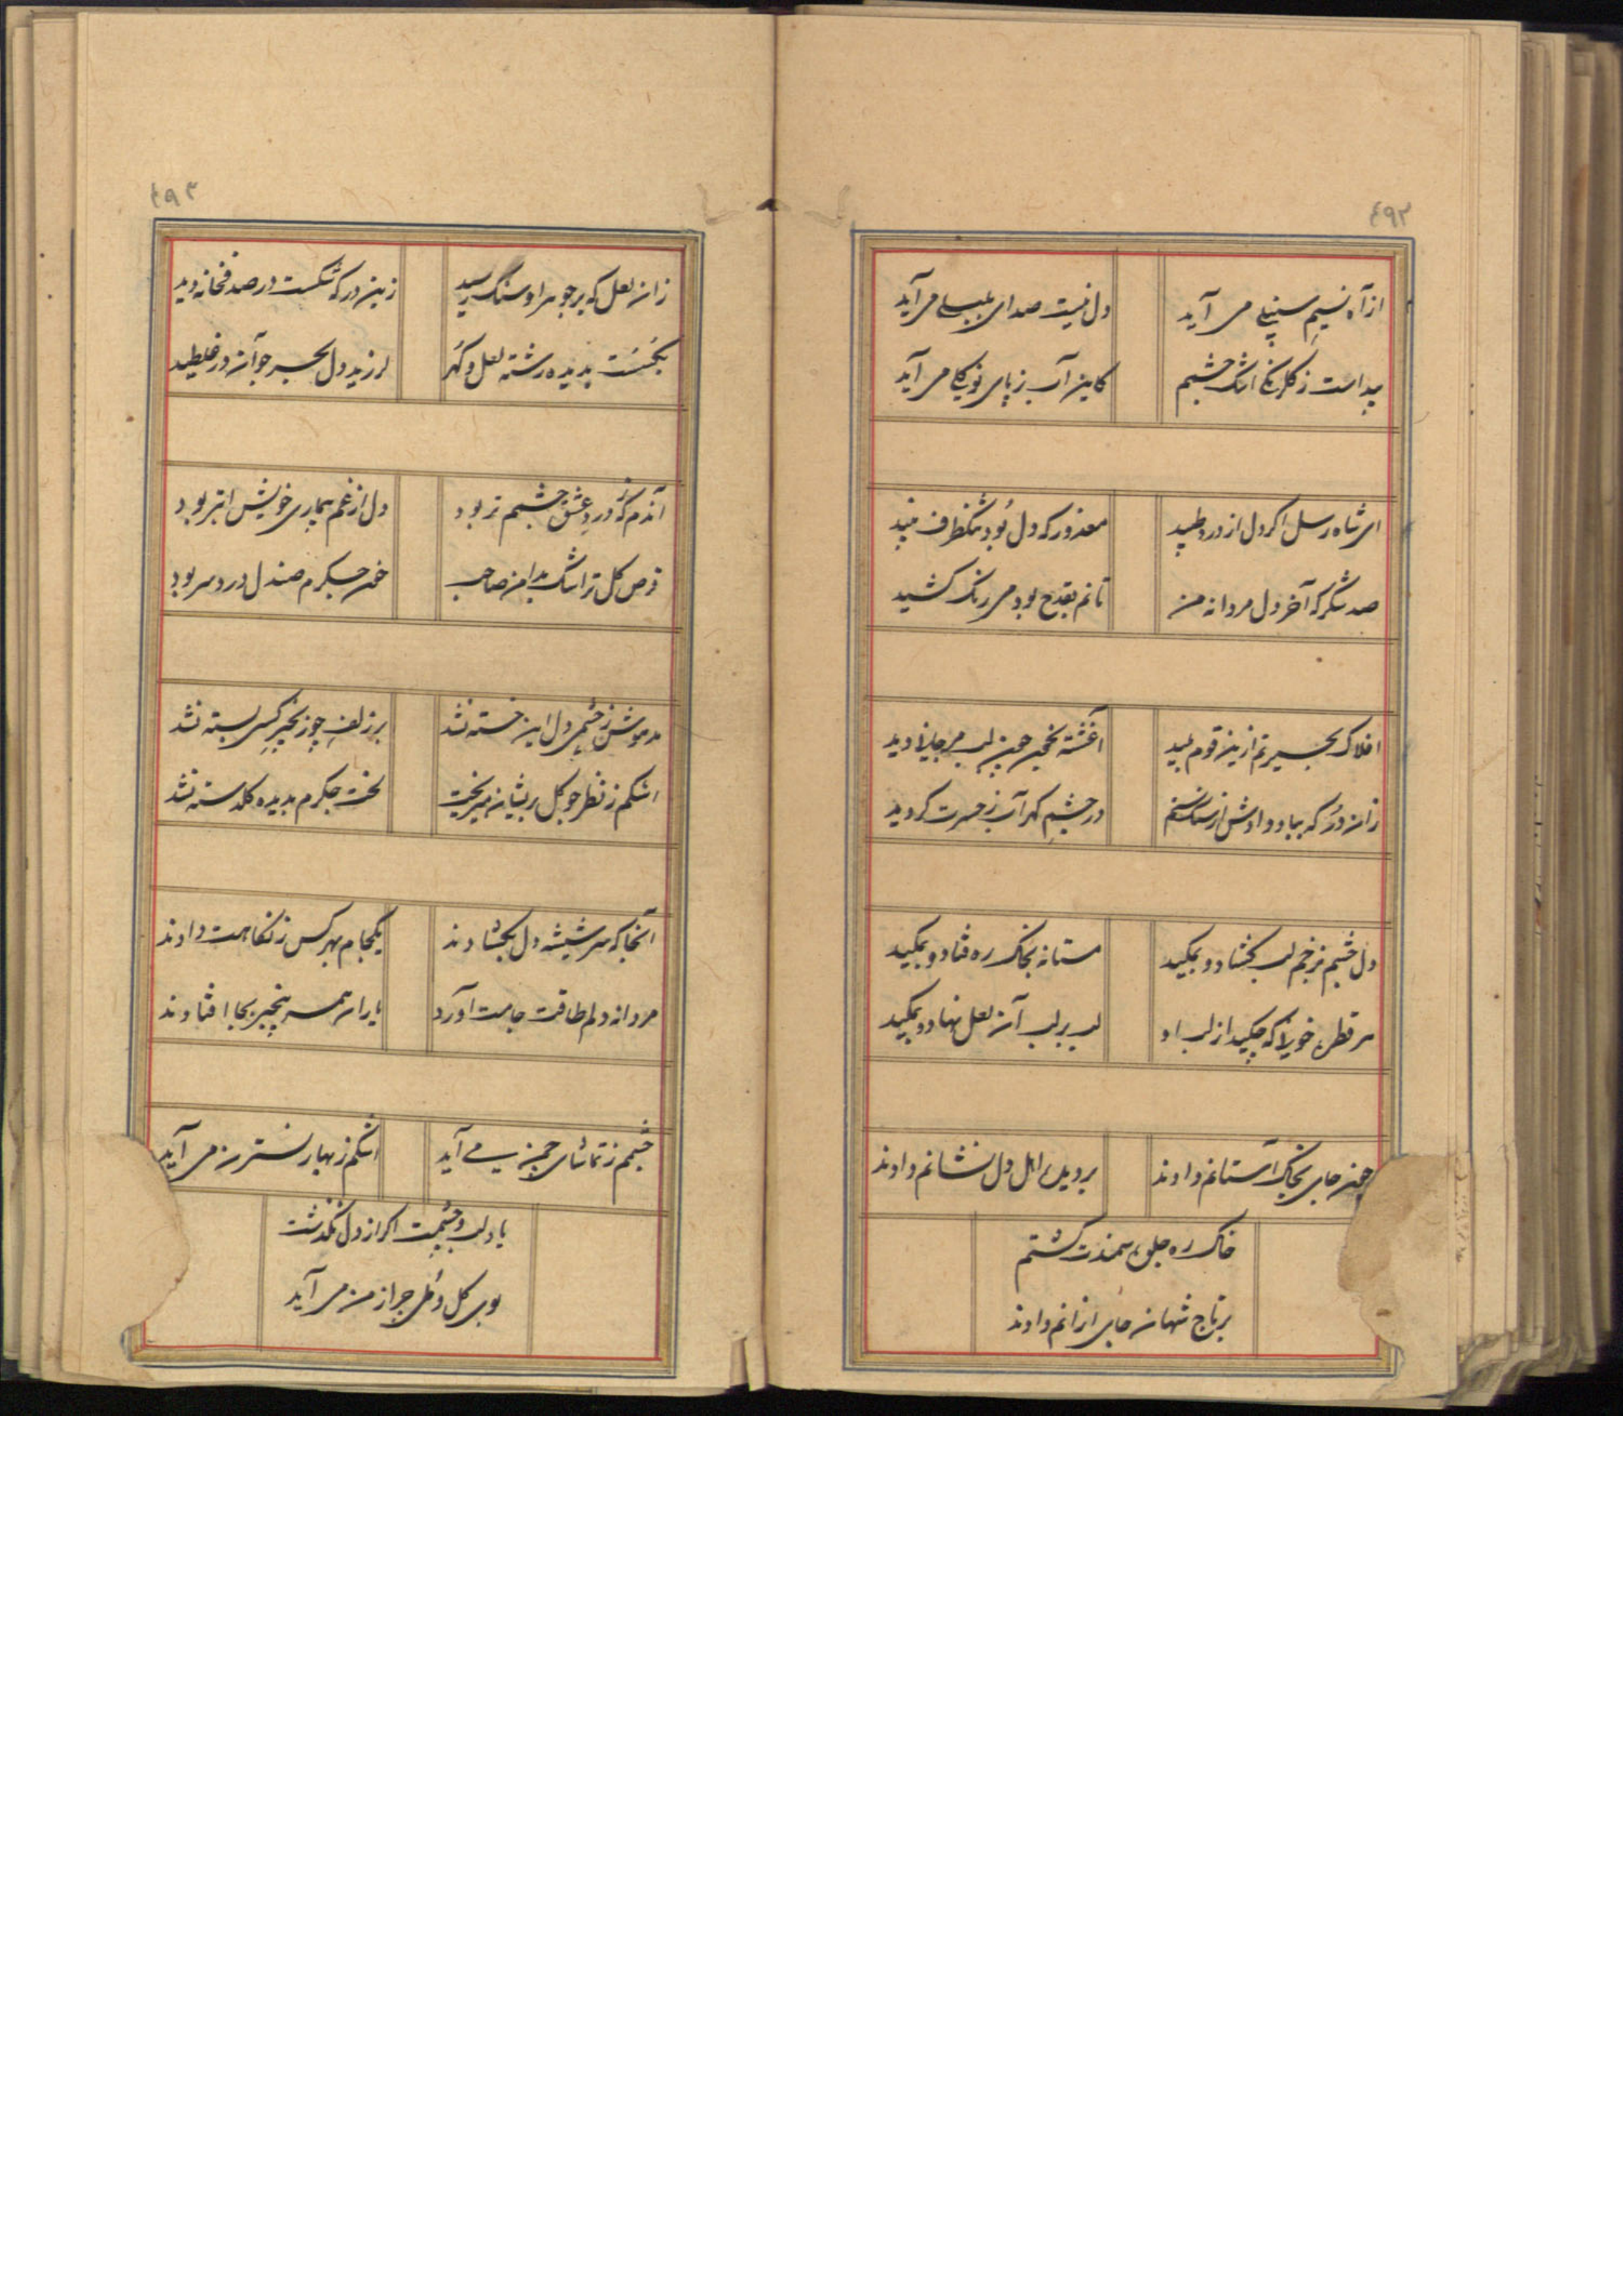 ٤٩٢
از آه نسیم سنبلی می آید
دل نیست صدای بلبلی می آید
پیداست ز کلرنگی اشک چشمم
کاین آب ز پای نو کلی می آید
ای شاه رسل اکر دل از درد طپید
معذور که دل بود تنکظرف
صد شکر که آخر دل مردانه من
تا نم بقدح بود می رنک کشید
افلاک بحیرتم ازین قوم
آغشته بخون لب
زان در که بباد دادش از سنک ستم
در چشم کهر آب ز حسرت کردید
دل خشم ز زخم لب بکشاد و بمکید
مستانه بخاک ره فتاد و بمکید
هر قطره خونرا که چکید از لب او
لب بر لب آن لعل نهاد و بمکید
چون جای بخاک آستانم دادند
بر دیده اهل دل نشانم دادند
خاک ره جلوه سمندت کشتم
بر تاج شهان جای ازانم دادند
٤٩٣
زان لعل که بر جوهر او سنک رسید
زین در که شکست در صدفخانه دید
بکسست بدیده رشته لعل و کهر
لرزید دل بحر چو آن در غلطید
آندم که ز درد عشق چشمم تر بود
دل از غم بیماری خویش ابتر بود
قرص کل تر اشک بدامن صاحب
خون جکرم صندل درد سر بود
مدهوش ز چشمی دل این خسته نشد
بر زلف چو زنجیر کسی بسته نشد
اشکم ز نظر چو کل پریشان میریخت
لخت جکرم بدیده کلدسته نشد
آنجا که سر شیشه دل بکشادند
یکجام بهر کس ز نکاهت دادند
مردانه دلم طاقت جامت آورد
یاران همه بیخبر بجا افتادند
چشمم ز تماشای چمن می آید
اشکم ز بهار نسترن می آید
یاد لب و چشمت اکر از دل نکذشت
بوی کل و مل چرا ز من می آید